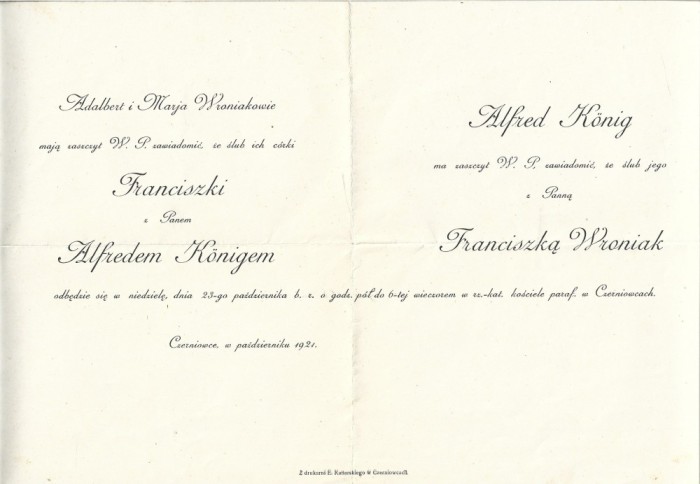 Adalbert i Marja Wroniakowie
mają zaszczyt W. P. zawiadomić, że ślub ich córki
Franciszki
z Panem
Alfredem Königem
Alfred König
ma zaszczyt W. P. zawiadomić, że ślub jego
z Panną
Franciszką Wroniak
odbędzie się w niedzielę, dnia 23-go października b. r. o godz. pół do 6-tej wieczorem w rz.-kat. kościele paraf. w Czerniowcach.
Czerniowce, w październiku 1921.
Z drukarni E. Kattowskiego w Czerniowcach